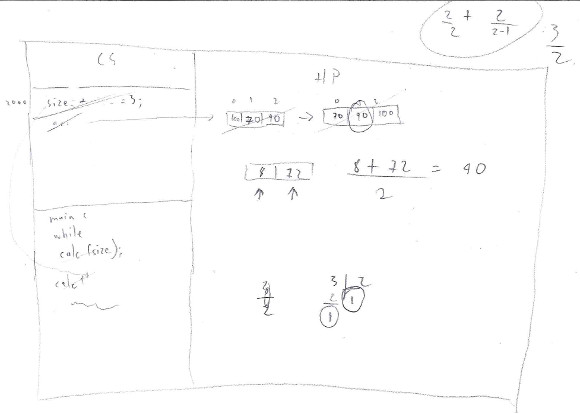 2/2 + 2/2-1
3/2
CS
HP
2000
size = 3;
0 1 2
100 70 90
0 2
70 90 100
8 72
8 + 72 / 2 = 40
main :
while
calc (size);
calc
2
3 2
2
1 1